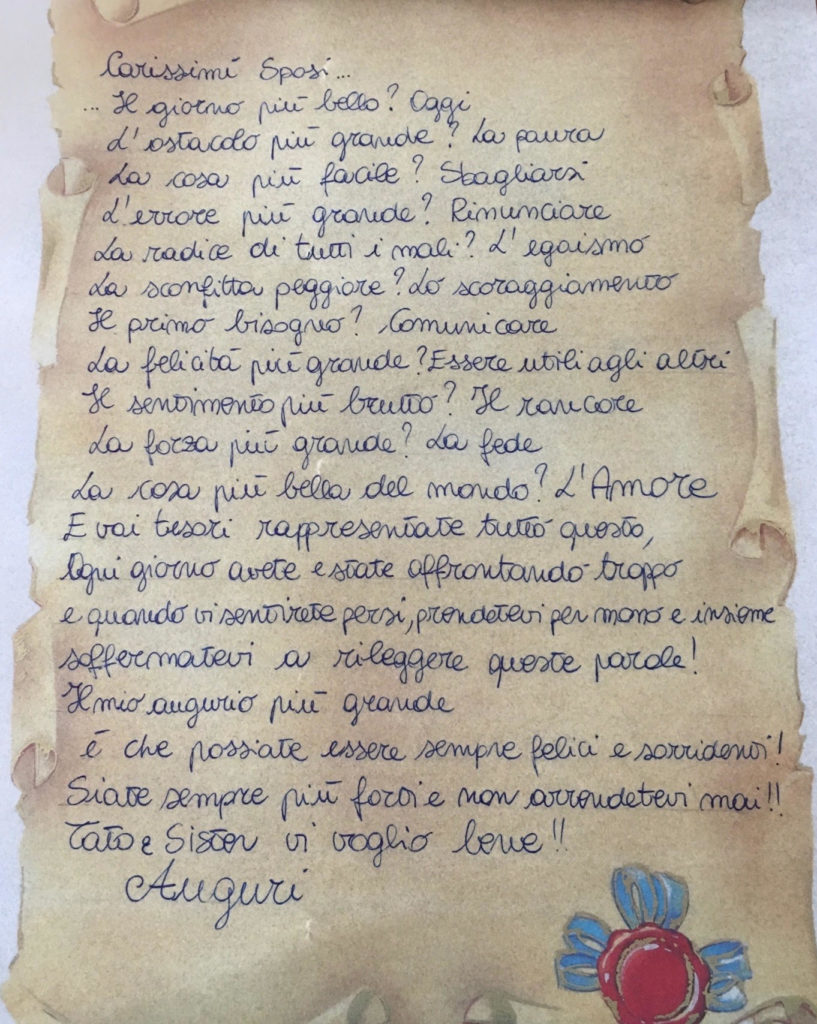 Carissimi Sposi...
... Il giorno più bello? Oggi
L'ostacolo più grande? La paura
La cosa più facile? Sbagliarsi
L'errore più grande? Rinunciare
La radice di tutti i mali? L'egoismo
La sconfitta peggiore? Lo scoraggiamento
Il primo bisogno? Comunicare
La felicità più grande? Essere utili agli altri
Il sentimento più brutto? Il rancore
La forza più grande? La fede
La cosa più bella del mondo? L'Amore
E voi tesori rappresentate tutto questo,
Ogni giorno avete e state affrontando troppo
e quando vi sentirete persi, prendetevi per mano e insieme
soffermatevi a rileggere queste parole!
Il mio augurio più grande
é che possiate essere sempre felici e sorridenti!
Siate sempre più forti e non arrendetevi mai!!
Tato e Sister vi voglio bene!!
Auguri